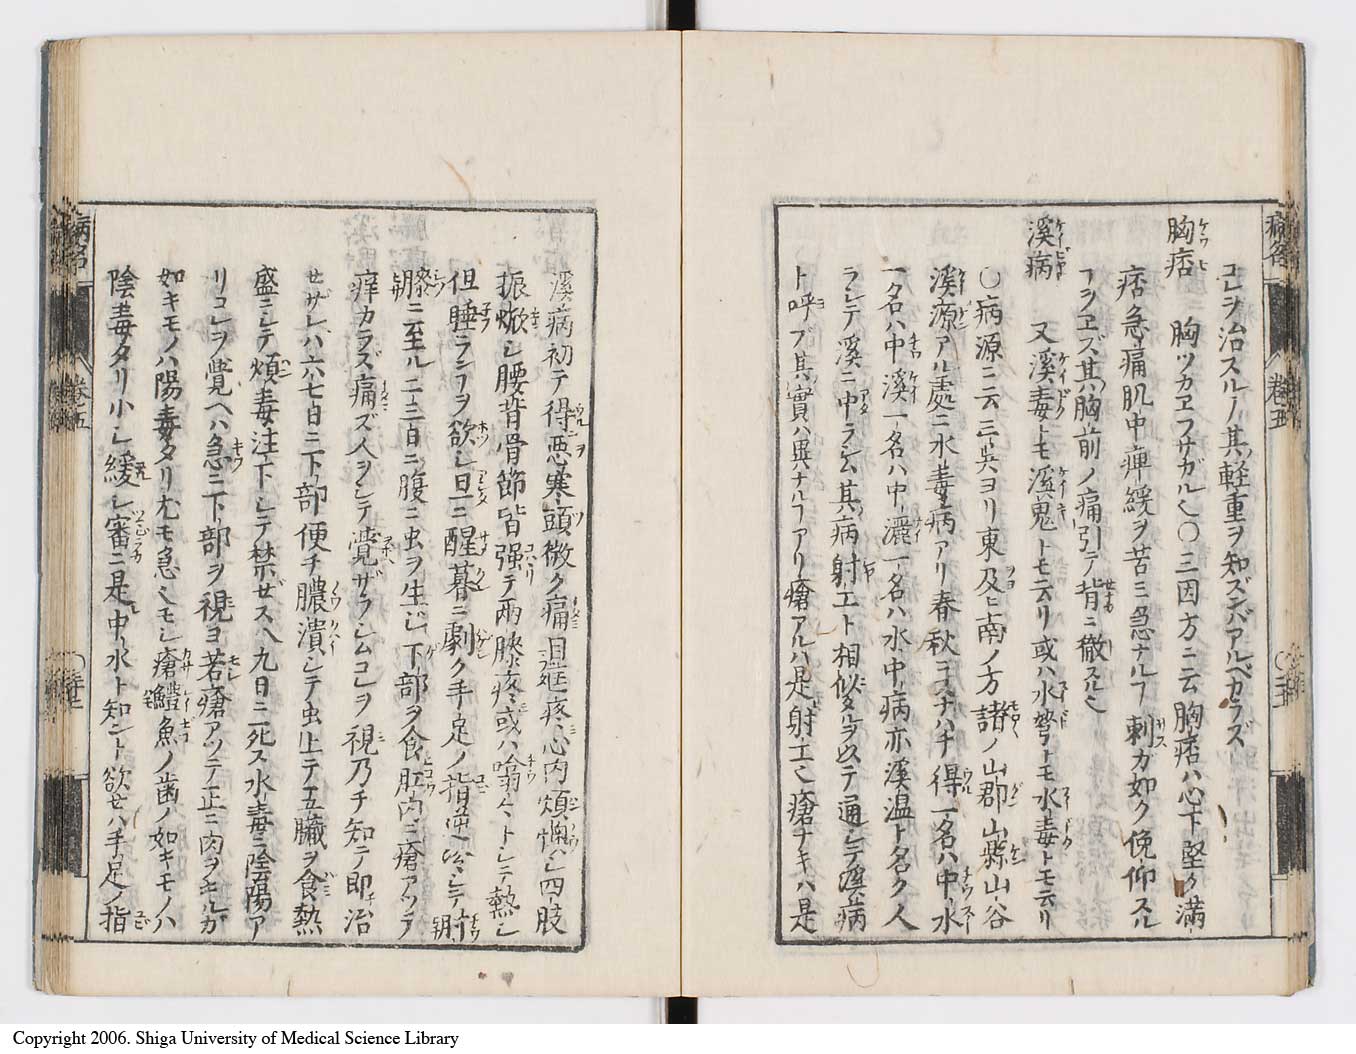 コレヲ治スル丿其軽重ヲ知ズンバアルベカラズ
胸痞 胸ツカヱフサガル也〇三因方ニ云胸痞ハ心下堅ク満
痞急痛肌中痺緩ヲ苦ミ急ナルヿ刺カ如ク俛仰スル
ヿヲヱズ其胸前ノ痛引テ背ニ徹スル也
溪病 又溪毒トモ溪鬼トモ云リ或ハ水弩トモ水毒トモ云リ
〇病源ニ云三呉ヨリ東及ヒ南ノ方諸ノ山郡山縣山谷
溪源アル處ニ水毒ノ病アリ春秋スナハチ得一名ハ中水
一名ハ中溪一名ハ中灑一名ハ水中病亦溪温ト名ク人
ラシテ溪ニ中ラシム其病射工ト相似タルヲ以テ通シテ溪病
ト呼ブ其實ハ異ナルヿアリ瘡アルハ是射工也瘡ナキハ是
溪病初テ得惡寒頭微ク痛目眶疼心内煩懊シ四肢
振焮シ腰背骨節皆强テ兩膝疼或ハ噏々トシテ熱シ
但睡ランヿヲ欲シ旦ニ醒暮ニ劇ク手足ノ指逆冷シテ肘
膝ニ至ル二三日ニ腹ニ虫ヲ生シ下部ヲ食肛内ニ瘡アツテ
痒カラズ痛ズ人ヲシテ覺ザラシムコレヲ視乃チ知テ即治
セザレハ六七日ニ下部便チ膿潰シテ虫上テ五臓ヲ食熱
盛ニシテ煩毒注下シテ禁ゼス八九日ニ死ス水毒ニ陰陽ア
リコレヲ覺ヘハ急ニ下部ヲ視ヨ若瘡アツテ正ニ肉ヲキルガ
如キモノハ陽毒タリ尤モ急也モシ瘡鱧魚ノ歯ノ如キモノハ
陰毒タリ小シ緩シ審ニ是中水ト知ント欲セハ手足ノ指
病名
巻五
病名
巻五
Copyright 2006. Shiga University of Medical Science Library